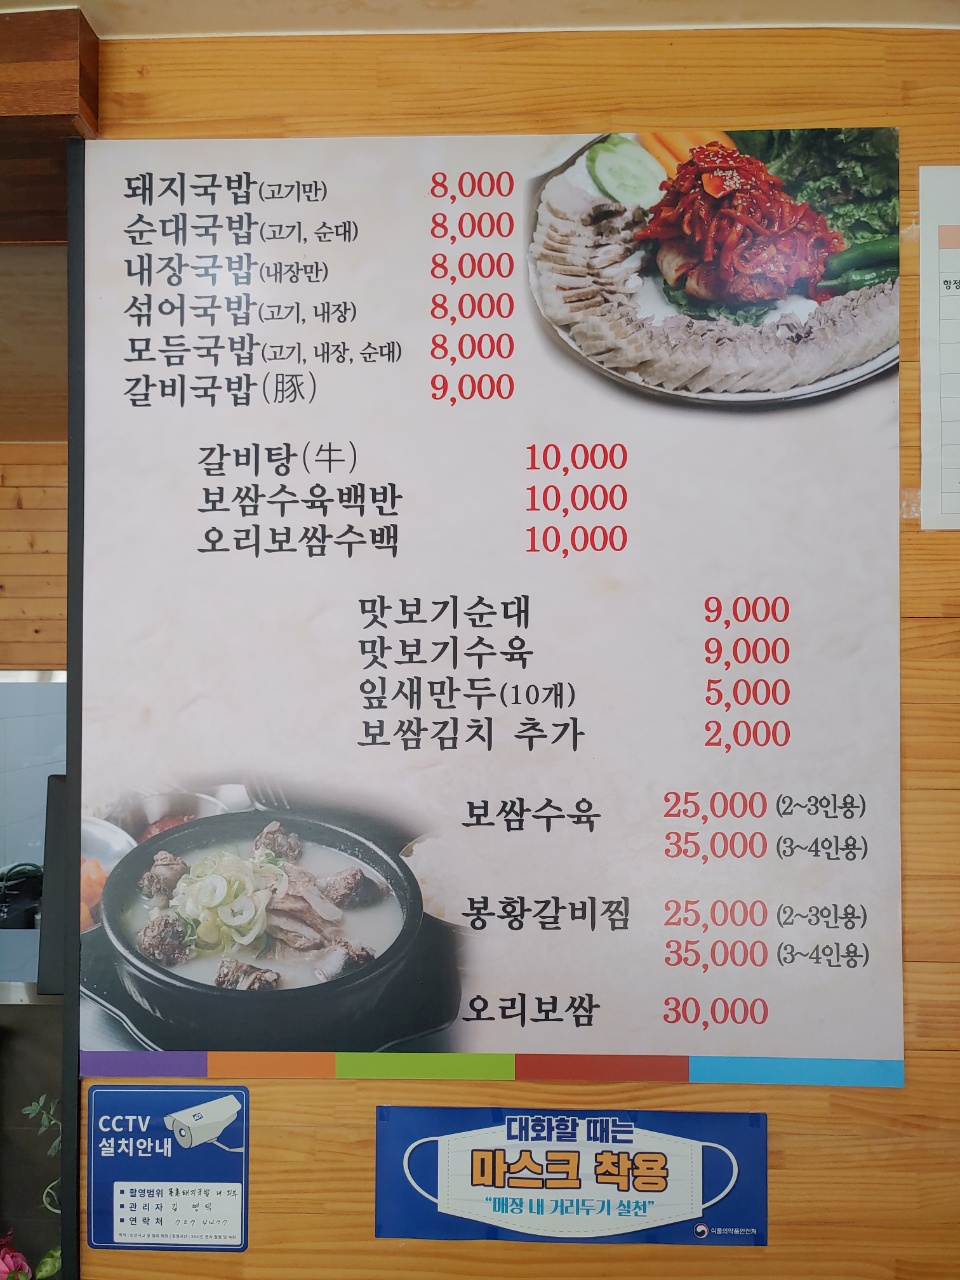 돼지국밥(고기만) 8,000
순대국밥(고기, 순대) 8,000
내장국밥(내장만) 8,000
섞어국밥(고기, 내장) 8,000
모듬국밥(고기, 내장, 순대) 8,000
갈비국밥(豚) 9,000
갈비탕(牛) 10,000
보쌈수육백반 10,000
오리보쌈수백 10,000
맛보기순대 9,000
맛보기수육 9,000
잎새만두(10개) 5,000
보쌈김치 추가 2,000
보쌈수육 25,000 (2~3인용)
35,000 (3~4인용)
봉황갈비찜 25,000 (2~3인용)
35,000 (3~4인용)
오리보쌈 30,000
CCTV
설치안내
촬영범위 돼지국밥 내·외부
관리자 김
연락처
대화할 때는
마스크 착용
“매장 내 거리두기 실천”
식품의약품안전처
항정